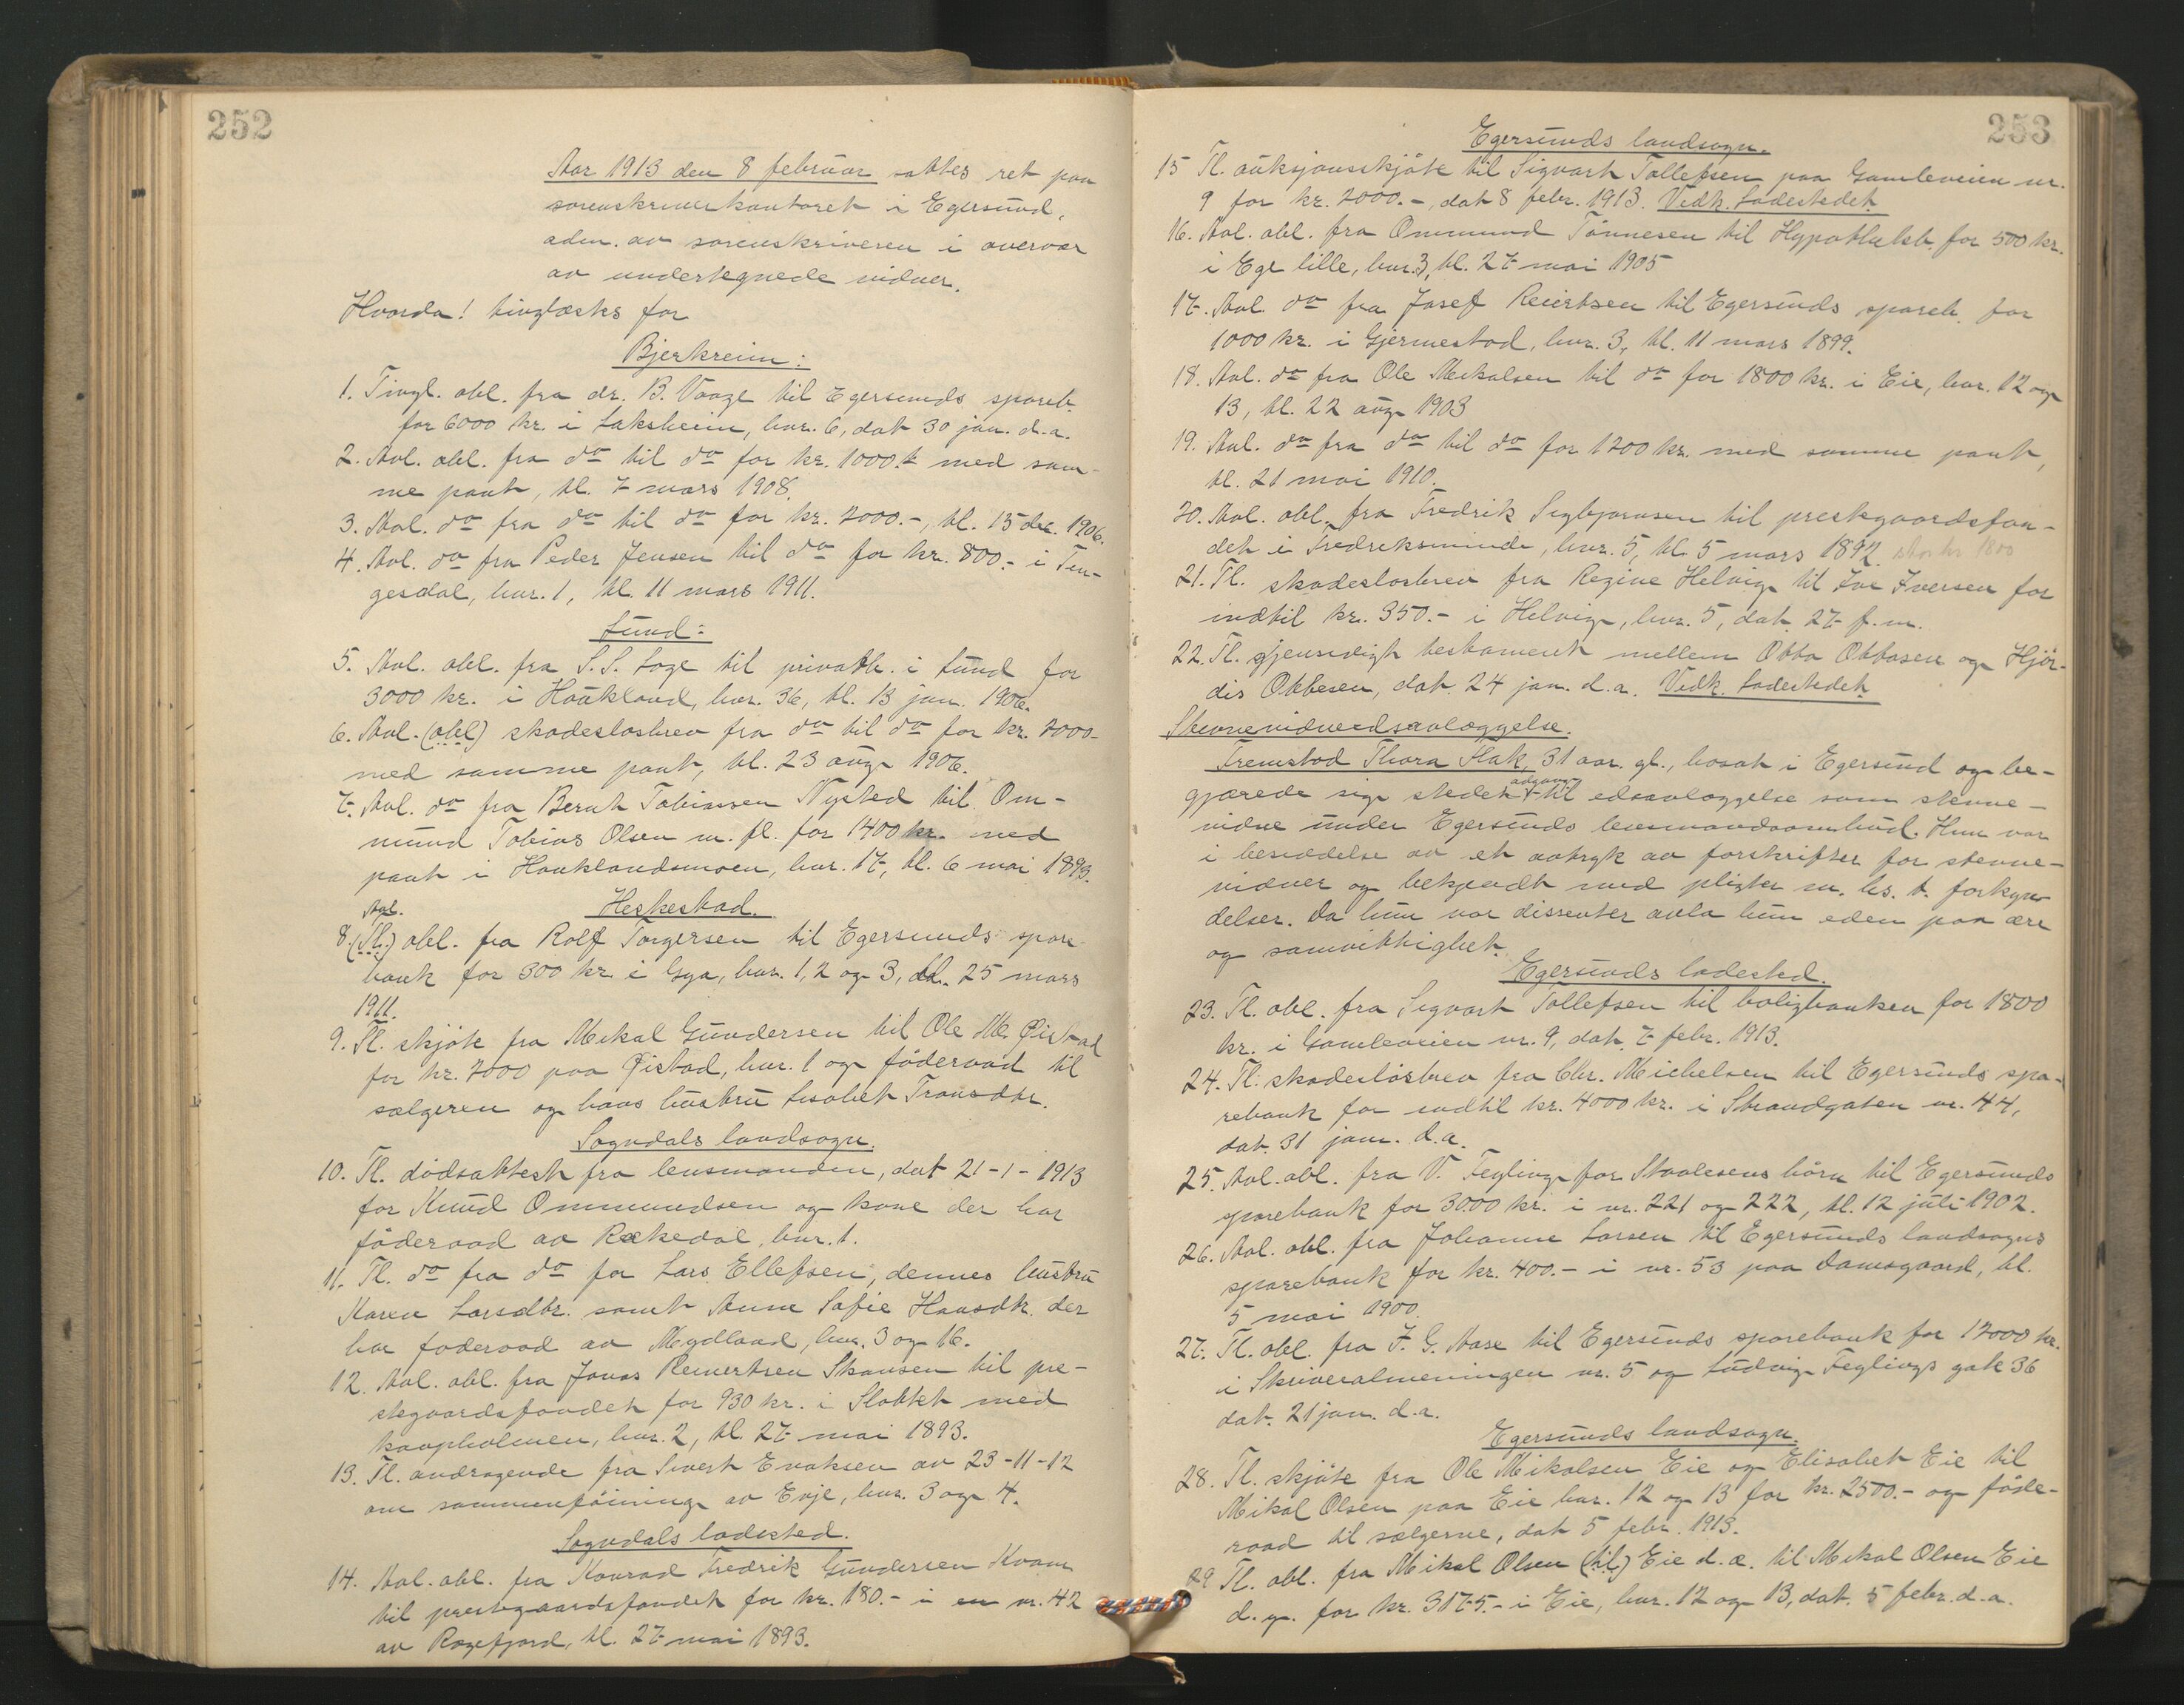 252
Aar 1913 den 8 februar sattes ret paa
sorenskriverkontoret i Egersund,
adm. av sorenskriveren i overvær
av undertegnede vidner.
Hvorda! tinglæstes for
Bjerkreim:
1. Tingl. obl. fra dr. B. Vaage til Egersunds spareb.
for 6000 kr. i Laksheim, bnr. 6, dat 30 jan. d.a.
2. Avl. obl. fra do til do for kr. 1000.- med sam-
me pant, tl. 7 mars 1908.
3. Avl. do fra do til do for kr. 2000.-, tl. 15 dec. 1906.
4. Avl. do fra Peder Jensen til do for kr. 800.- i Ten-
gesdal, bnr. 1, tl. 11 mars 1911.
Lund:
5. Avl. obl. fra S. S. Lage til privatb. i Lund for
3000 kr. i Haukland, bnr. 36, tl. 13 jan. 1906.
6. Avl. (obl) skadesløsbrev fra do til do for kr. 2000-
med samme pant, tl. 23 aug 1906.
7. Avl. do fra Bernt Tobiassen Nysted til Om-
mund Tobias Olsen m. fl. for 1400 kr. med
pant i Hauklandsmoen, bnr. 17, tl. 6 mai 1893.
Heskestad.
Avl.
8. (Tl.) obl. fra Rolf Torgersen til Egersunds spare-
bank for 300 kr. i Gya, bnr. 1, 2 og 3, tl. 25 mars
1911.
9. Tl. skjøte fra Mikal Gundersen til Ole M. Øistad
for kr. 2000 paa Øistad, bnr. 1 og føderaad til
sælgeren og hans hustru Lisabet Tronsdtr.
Sogndals landsogn.
10. Tl. dødsattest fra lensmanden, dat 21-1-1913
for Knud Ommundsen og kone der har
føderaad av Rækedal, bnr. 1.
11. Tl. do fra do for Lars Ellefsen, dennes hustru
Karen Larsdtr. samt Anne Sofie Hansdtr. der
har føderaad av Mydland, bnr. 3 og 16.
12. Avl. obl. fra Jonas Reinertsen Skansen til pre-
stegaardsfondet for 930 kr. i Slottet med
kaapholmen, bnr. 2, tl. 27 mai 1893.
13. Tl. andragende fra Sivert Enoksen av 23-11-12
om sammenføining av Evje, bnr. 3 og 4.
Sogndals ladested.
14. Avl. obl. fra Konrad Fredrik Gundersen Kvam
til prestegaardsfondet for kr. 180.- i en nr. 42
av Ragefjord, tl. 27 mai 1893.
253
Egersunds landsogn.
15 Tl. auksjonsskjøte til Sigvart Tollefsen paa Gamleveien nr.
9 for kr. 2000.-, dat 8 febr. 1913. Vedk. Ladestedet.
16. Avl. obl. fra Ommund Tønnesen til Hypotekb. for 500 kr.
i Ege lille, bnr. 3, tl. 27 mai 1905
17. Avl. do fra Josef Reiertsen til Egersunds spareb. for
1000 kr. i Gjermestad, bnr. 3, tl. 11 mars 1899.
18. Avl. do fra Ole Mikalsen til do for 1800 kr. i Eie, bnr. 12 og
13, tl. 22 aug 1903
19. Avl. do fra do til do for 1200 kr. med samme pant,
tl. 21 mai 1910.
20. Avl. obl. fra Fredrik Segbjørnsen til prestgaardsfon-
det i Fredriksminde, bnr. 5, tl. 5 mars 1892. stor kr 1800
21. Tl. skadesløsbrev fra Regine Helvig til Ive Iversen for
indtil kr. 350.- i Helvig, bnr. 5, dat. 27 f.m.
22. Tl. gjensidigt testament mellem Obbo Obbosen og Hjør-
dis Obbesen, dat. 24 jan. d.a. Vedk. Ladestedet.
Stevnevidneedsavlæggelse.
Fremstod Thora Hak, 31 aar. gl., bosat i Egersund og be-
adgang
gjærede sig stedet til edsavlæggelse som stevne-
vidne under Egersunds lensmandsombud. Hun var
i besiddelse av et avtryk av forskrifter for stevne-
vidner og bekjendt med pligter m. hs. t. forkyn-
delser. Da hun var dissenter avla hun eden paa ære
og samvittighet.
Egersunds ladested.
23. Tl. obl. fra Sigvart Tollefsen til boligbanken for 1800
kr. i Gamleveien nr. 9, dat. 7 febr. 1913.
24. Tl. skadesløsbrev fra Chr. Michelsen til Egersunds spa-
rebank for indtil kr. 4000 kr. i Strandgaten nr. 44,
dat. 31 jan. d.a.
25. Avl. obl. fra V. Feyling for Staalesens børn til Egersunds
sparebank for 3000 kr. i nr. 221 og 222, tl. 12 juli 1902.
26. Avl. obl. fra Johanne Larsen til Egersunds landsogns
sparebank for kr. 400.- i nr. 53 paa Damsgaard, tl.
5 mai 1900.
27. Tl. obl. fra F. G. Aase til Egersunds sparebank for 12000 kr.
i Skriveralmeningen nr. 5 og Ludvig Feylings gate 36
dat. 21 jan. d.a.
Egersunds landsogn.
28. Tl. skjøte fra Ole Mikalsen Eie og Elisabet Eie til
Mikal Olsen paa Eie bnr. 12 og 13 for kr. 2500.- og føde-
raad til sælgerne, dat 5 febr. 1913.
29 Tl. obl. fra Mikal Olsen (til) Eie d.æ. til Mikal Olsen Eie
d.y. for kr. 3175.- i Eie, bnr. 12 og 13, dat. 5 febr. d.a.